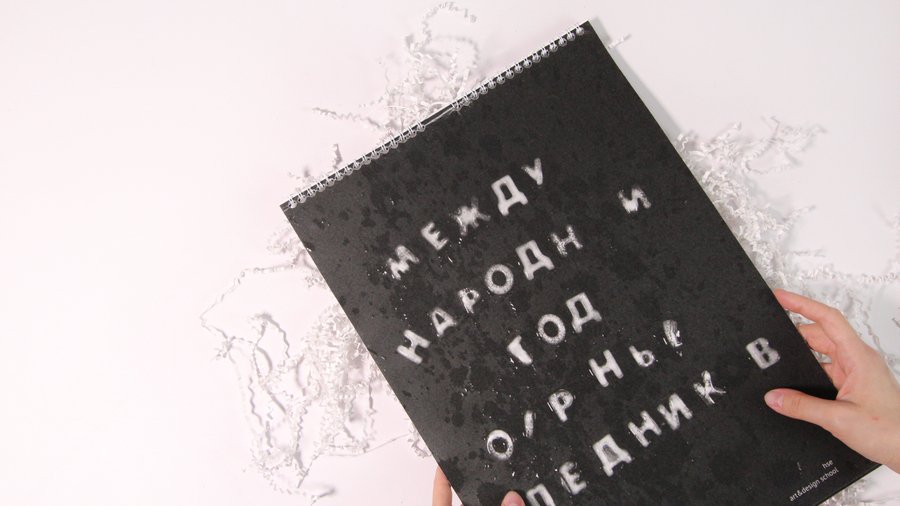 МЕЖДУ
НАРОДН И
ГОД
ЛЕДНИК В
hse
art&design school